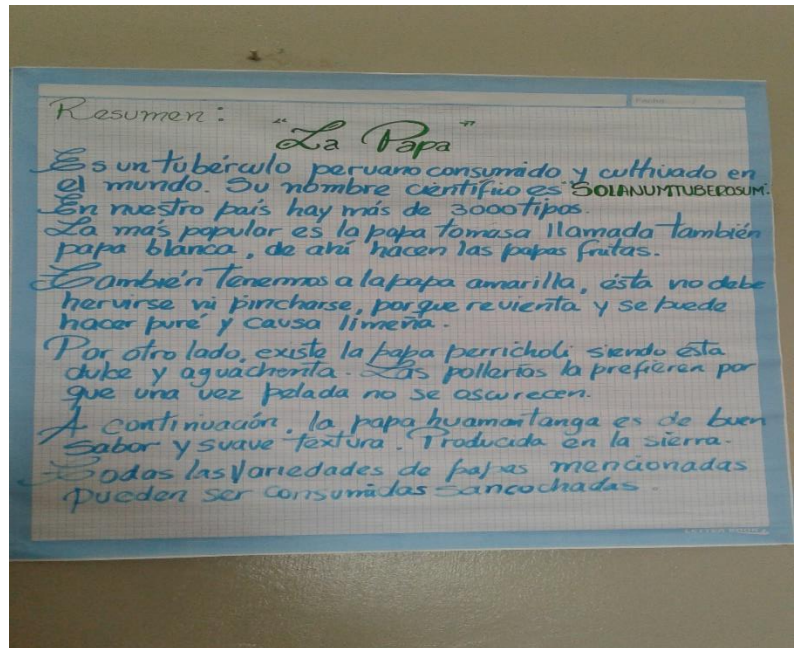 Resumen:
"La Papa"
Es un tubérculo peruano consumido y cultivado en
el mundo. Su nombre científico es "SOLANUMTUBEROSUM".
En nuestro país hay más de 3000 tipos.
La más popular es la papa tomasa llamada también
papa blanca, de ahí hacen las papas fritas.
También tenemos a la papa amarilla, ésta no debe
hervirse ni pincharse, porque revienta y se puede
hacer puré y causa limeña.
Por otro lado, existe la papa perricholi siendo ésta
dulce y aguachenta. Las pollerías la prefieren por
que una vez pelada no se oscurecen.
A continuación, la papa huamantanga es de buen
sabor y suave textura. Producida en la sierra.
Todas las Variedades de papas mencionadas
pueden ser consumidas sancochadas.